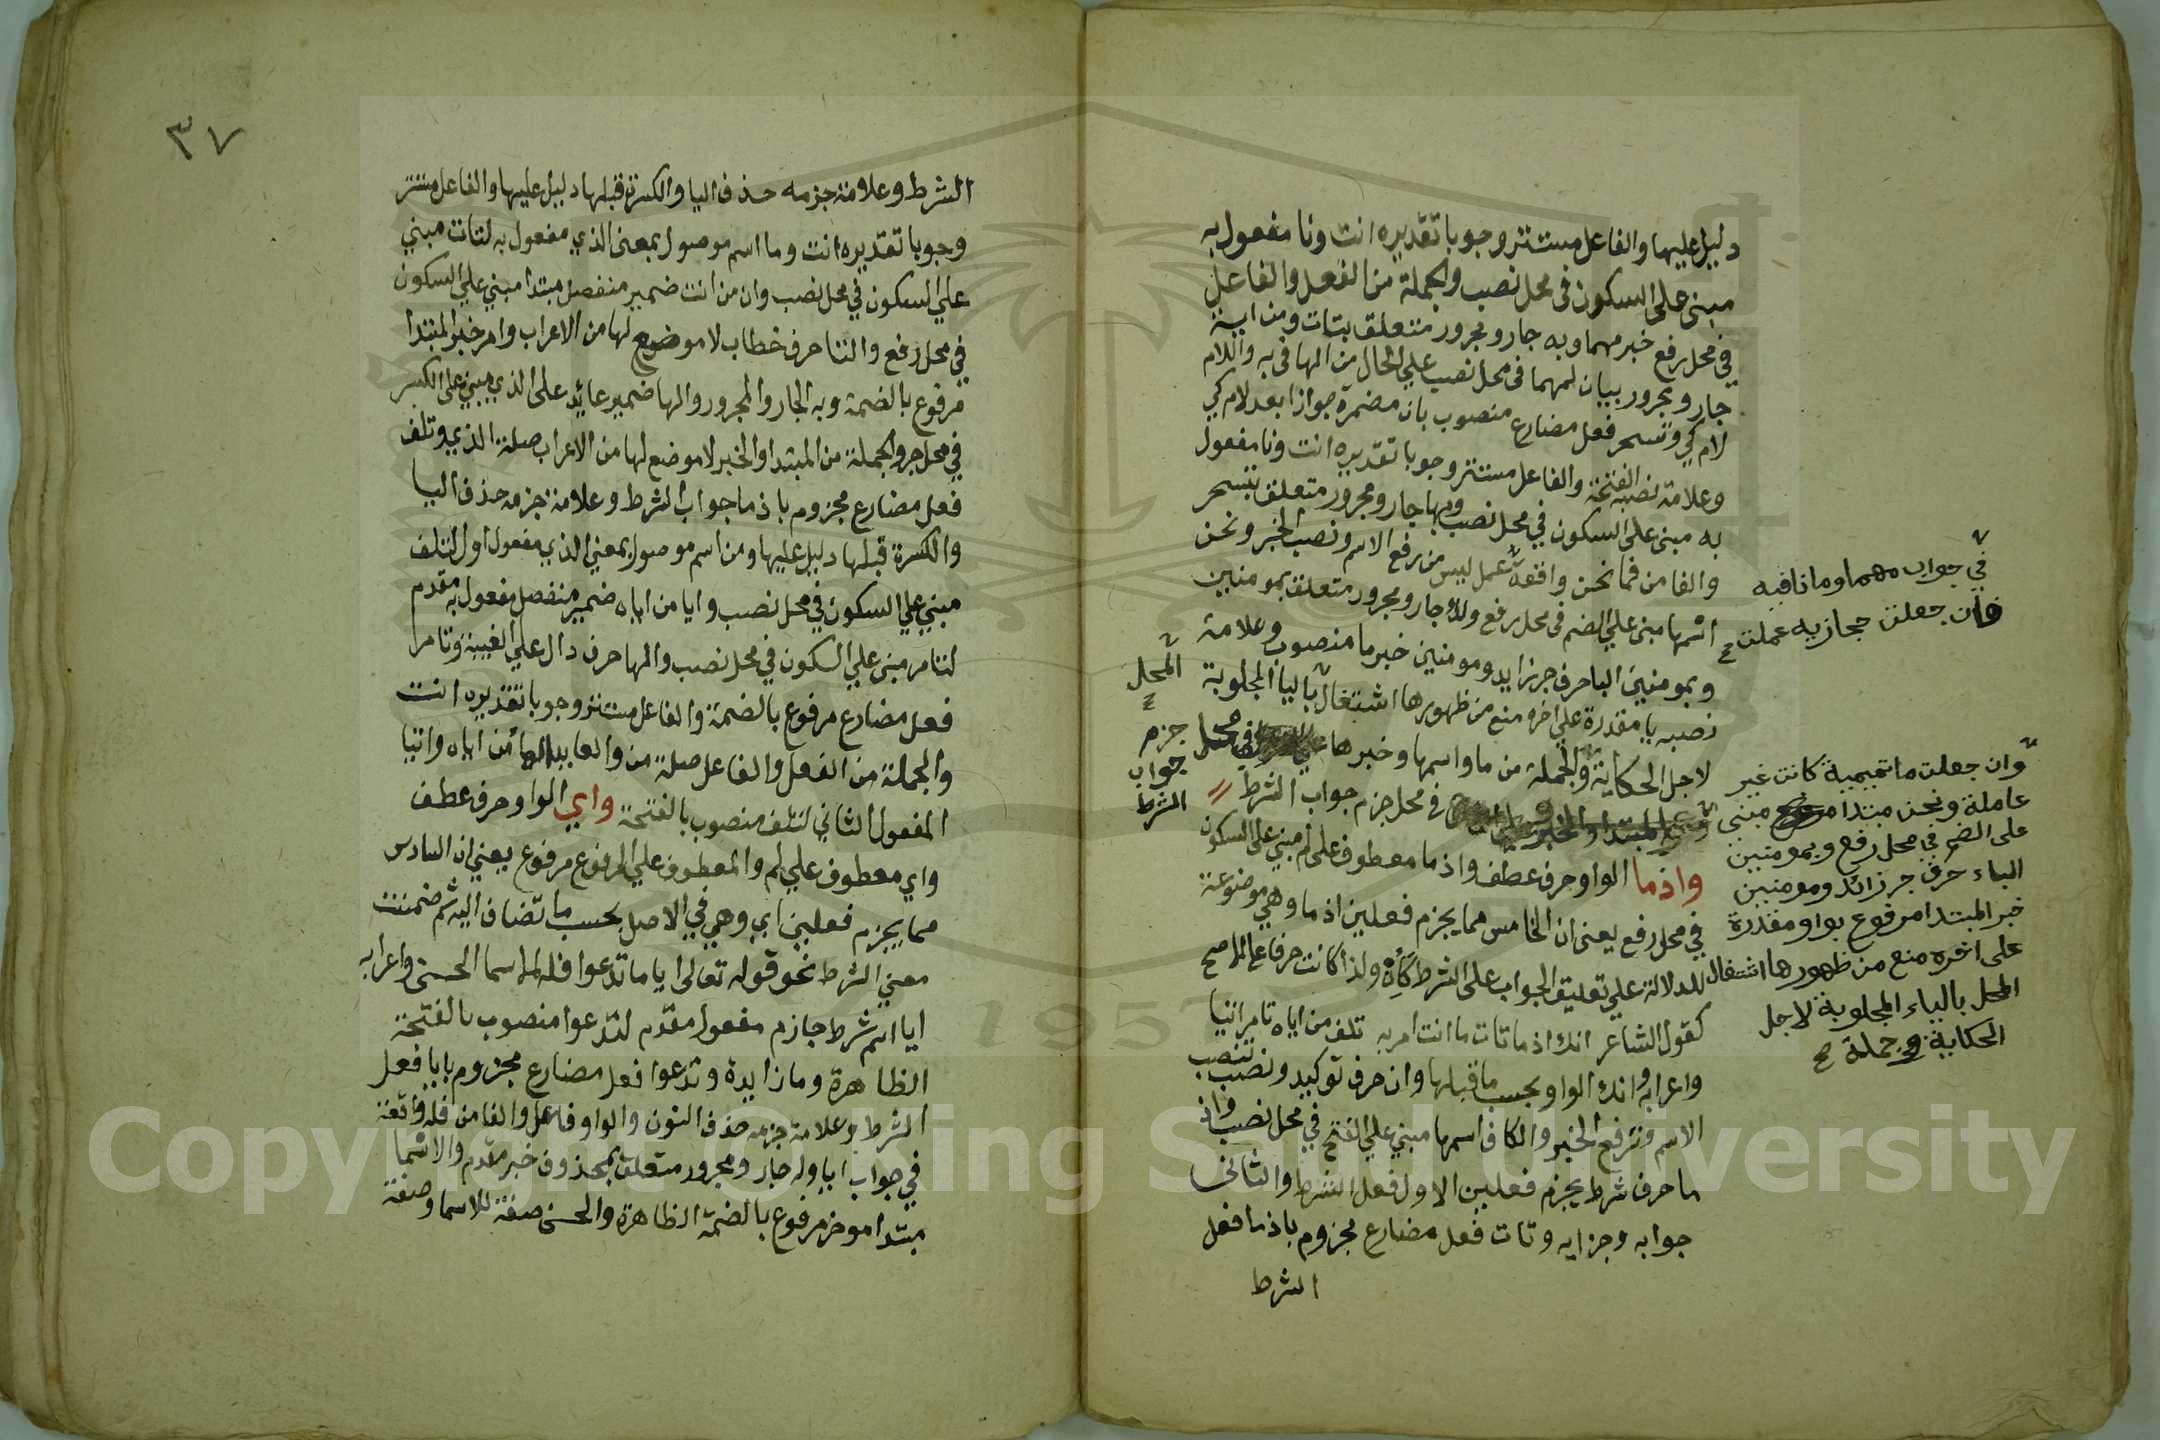 دليل عليها والفاعل مستتر وجوبا تقديره انت ونا مفعول به
مبنى على السكون فى محل نصب والجملة من الفعل والفاعل
في محل رفع خبر مهما وبه جار ومجرور متعلق بتات ومن اية
جار ومجرور بيان لمهما فى محل نصب علي الحال من الها فى به واللام
لام كي وتسحر فعل مضارع منصوب بان مضمرة جوازا بعد لام كي
وعلامة نصبه الفتحة والفاعل مستتر وجوبا تقديره انت ونا مفعول
به مبنى على السكون في محل نصب وبها جار ومجرور متعلق بتسحر
والفا من فما نحن واقعة عمل ليس من رفع الاسم ونصب الخبر ونحن
اسمها مبنى علي الضم فى محل رفع ولك جار ومجرور متعلق بمومنين
وبمومنين الباحرف جر زايد ومومنين خبر ما منصوب وعلامة
نصبه يا مقدرة علي اخره منع من ظهورها اشتغال باليا المجلوبة
لاجل الحكاية والجملة من ما واسمها وخبرها فى محل
المبتدا والخبر في محل جزم جواب الشرط
واذما الواو حرف عطف واذ ما معطوف على لم مبني على السكون
في محل رفع يعنى ان الخامس مما يجزم فعلين اذ ما وهي موضوعة
للدلالة علي تعليق الجواب على الشرط كان ولذا كانت حرفا على الاصح
كقول الشاعر انك اذ ما تات ما انت امر به تلف من اياه تامر اتيا
واعرابه وانك الواو بحسب ما قبلها وان حرف توكيد ونصب تنصب
الاسم وترفع الخبر والكاف اسمها مبني علي الفتح في محل نصب واذ
ما حرف شرط يجزم فعلين الاول فعل الشرط والثانى
جوابه وجزايه وتات فعل مضارع مجزوم باذ ما فعل
الشرط
في جواب مهما وما نافيه
فان جعلت حجازيه عملت
المحل
جزم
جواب
الشرط
وان جعلت ما تميمية كانت غير
عاملة ونحن مبتدا مبنى
على الضم في محل رفع وبمومنين
الباء حرف جر زائد ومومنين
خبر المبتدا مرفوع بواو مقدرة
على اخره منع من ظهورها اشتغال
المحل بالياء المجلوبة لاجل
الحكاية وجملة
٣٧
الشرط وعلامة جزمه حذف اليا والكسرة قبلها دليل عليها والفاعل مستتر
وجوبا تقديره انت وما اسم موصول بمعنى الذي مفعول به لتات مبني
علي السكون في محل نصب وان من انت ضمير منفصل مبتدا مبني علي السكون
في محل رفع والتا حرف خطاب لا موضع لها من الاعراب وامر خبر المبتدا
مرفوع بالضمة وبه الجار والمجرور والها ضمير عايد على الذي مبني على الكسر
في محل جر والجملة من المبتدا والخبر لا موضع لها من الاعراب صلة الذي وتلف
فعل مضارع مجزوم باذ ما جواب الشرط وعلامة جزمه حذف اليا
والكسرة قبلها دليل عليها ومن اسم موصول بمعني الذي مفعول اول لتلف
مبني علي السكون في محل نصب وايا من اياه ضمير منفصل مفعول به مقدم
لتامر مبني علي السكون في محل نصب والها حرف دال علي الغيبة وتامر
فعل مضارع مرفوع بالضمة والفاعل مستتر وجوبا تقديره انت
والجملة من الفعل والفاعل صلة من والعايد الها من اياه واتيا
المفعول الثاني لتلف منصوب بالفتحة واي الواو حرف عطف
واي معطوف علي لم والمعطوف علي المرفوع مرفوع يعني ان السادس
مما يجزم فعلين اي وهي في الاصل بحسب ما تضاف اليه ثم ضمنت
معني الشرط نحو قوله تعالى ايا ما تدعوا فله الاسما الحسنى واعرابه
ايا اسم شرط جازم مفعول مقدم لتدعوا منصوب بالفتحة
الظاهرة وما زايدة وتدعوا فعل مضارع مجزوم بايا فعل
الشرط وعلامة جزمه حذف النون والواو فاعل والفا من فله واقعة
في جواب ايا وله جار ومجرور متعلق بمحذوف خبر مقدم والاسما
مبتدا موخر مرفوع بالضمة الظاهرة والحسنى صفة للاسما وصفة
Copyright © King Saud University
1957